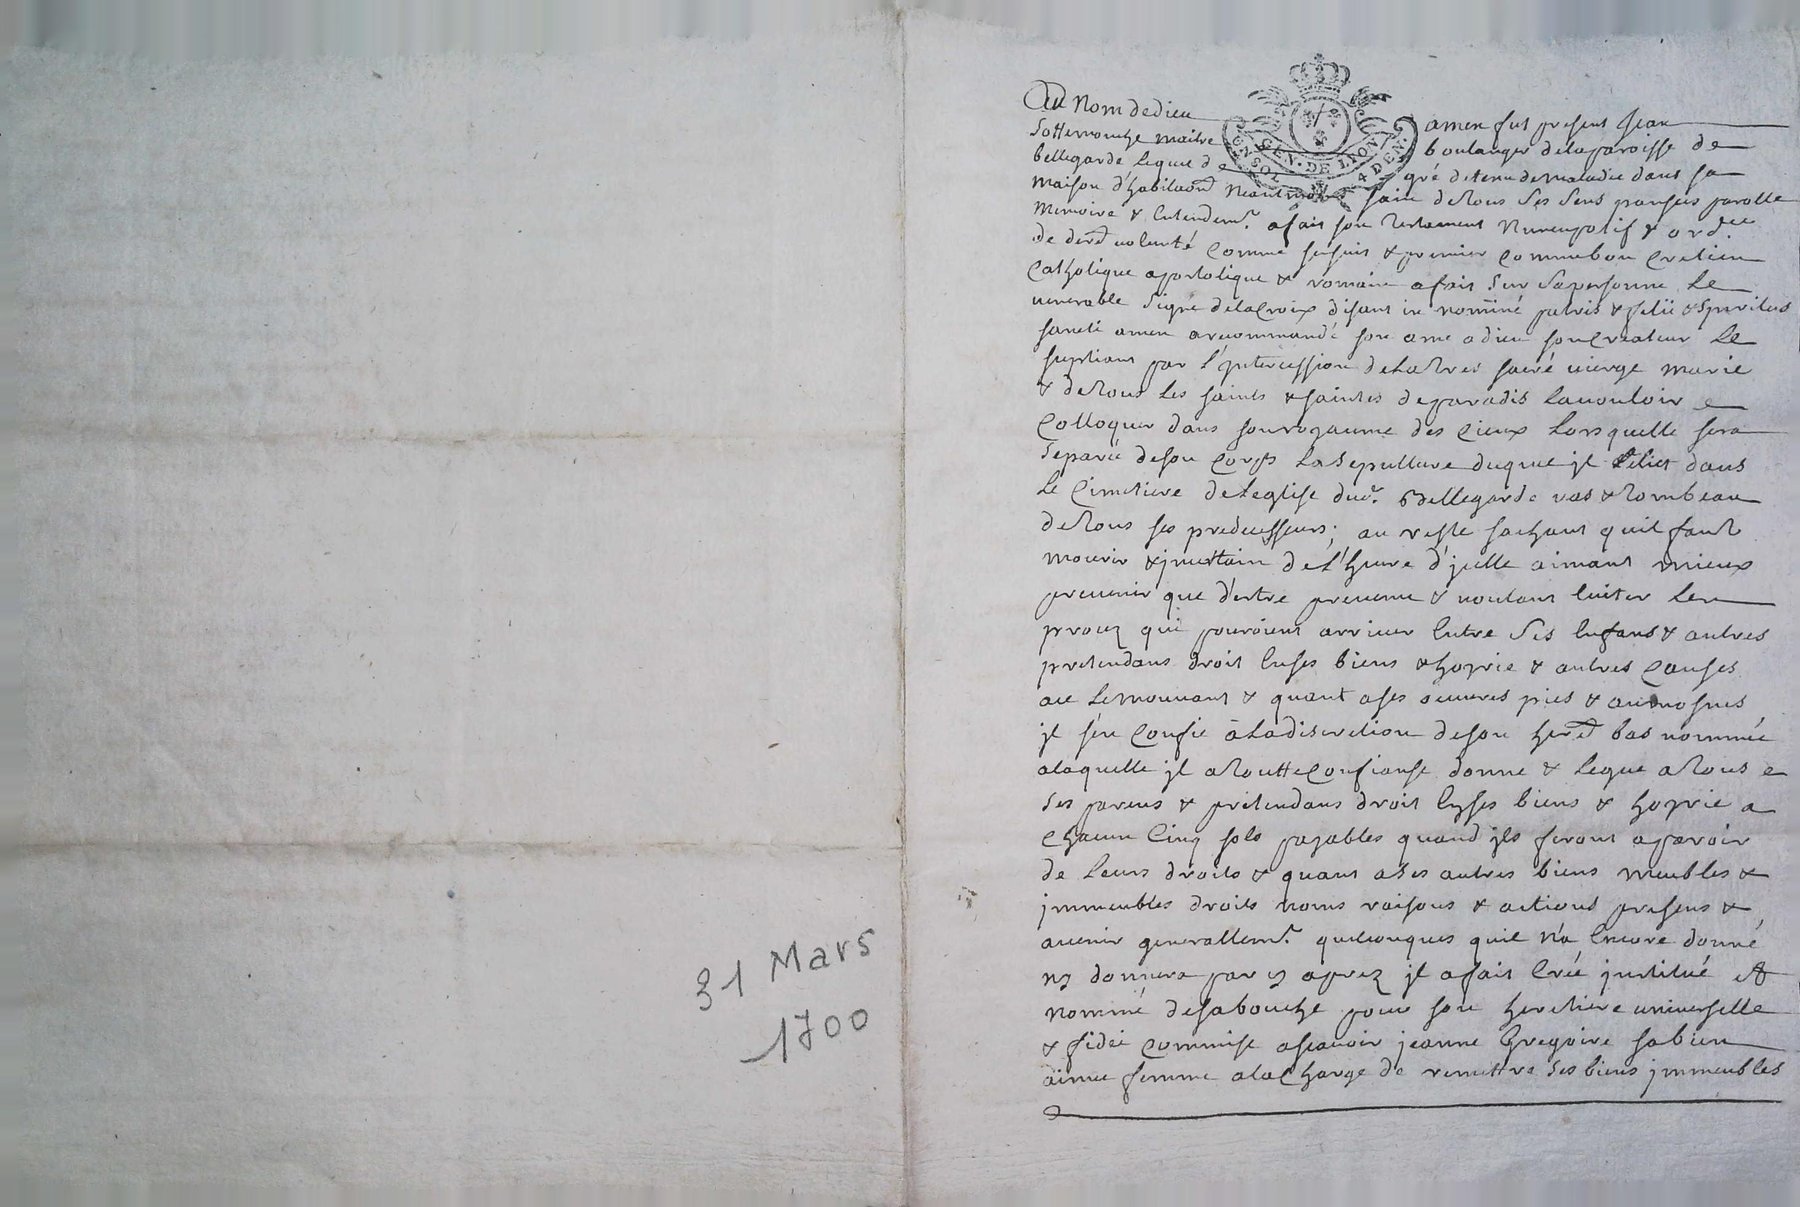 31 Mars
1700
Au Nom de dieu amen fut present Jean
Sottemouche maitre boulanger delaparoisse de
bellegarde lequel de gré detenu demaladie dans sa
maison d'habitaon Neantmoins sain detous ses sens pansées parolle
memoire & Entendemt. afait son testament Nuncupatif & ordce
de dere volonté comme sensuit & premier commebon cretien
catholique apostolique & romain afait sur sapersonne le
venerable signe delacroix disant in nominé patris & filii & spiritus
sancti amen arecommandé son ame adieu soncreateur le
supliant par l'intercession delatres sacré vierge marie
& detous les saints & saintes deparadis lavouloir
colloquer dans sonroyaume des cieux lorsquelle sera
separée deson corps lasepulture duquel jl Eslict dans
le cimetiere deleglise dud. Bellegarde vas & tombeau
detous ses predecesseurs; au reste sachant quil faut
mourir & jncertain del'heure d'jcelle aimant mieux
prevenir que d'estre prevenu & voulant Eviter les
procez qui pouroient arriver Entre ses Enfans & autres
pretendans droit Enses biens & hoyrie & autres causes
ace lemouvant & quant ases oeuvres pies & aumosnes
jl s'en confie àladiscretion deson hered bas nommée
alaquelle jl atoutteconfianse donne & legue atous
ses parens & pretendans droit Ensses biens & hoyrie a
chacun Cinq sols payables quand jls feront aparoir
de leurs droits & quant ases autres biens meubles &
jmmeubles droits noms raisons & actions presens &
avenir generallemt. quelconques quil n'a Encore donné
ny donnera par cy aprez jl afait Créé jnstitué et
nommé desabouche pour son heretiere universelle
& fidei commise ascavoir jeanne Gregoire sabien
aimée femme alacharge de remettre ses biens jmmeubles